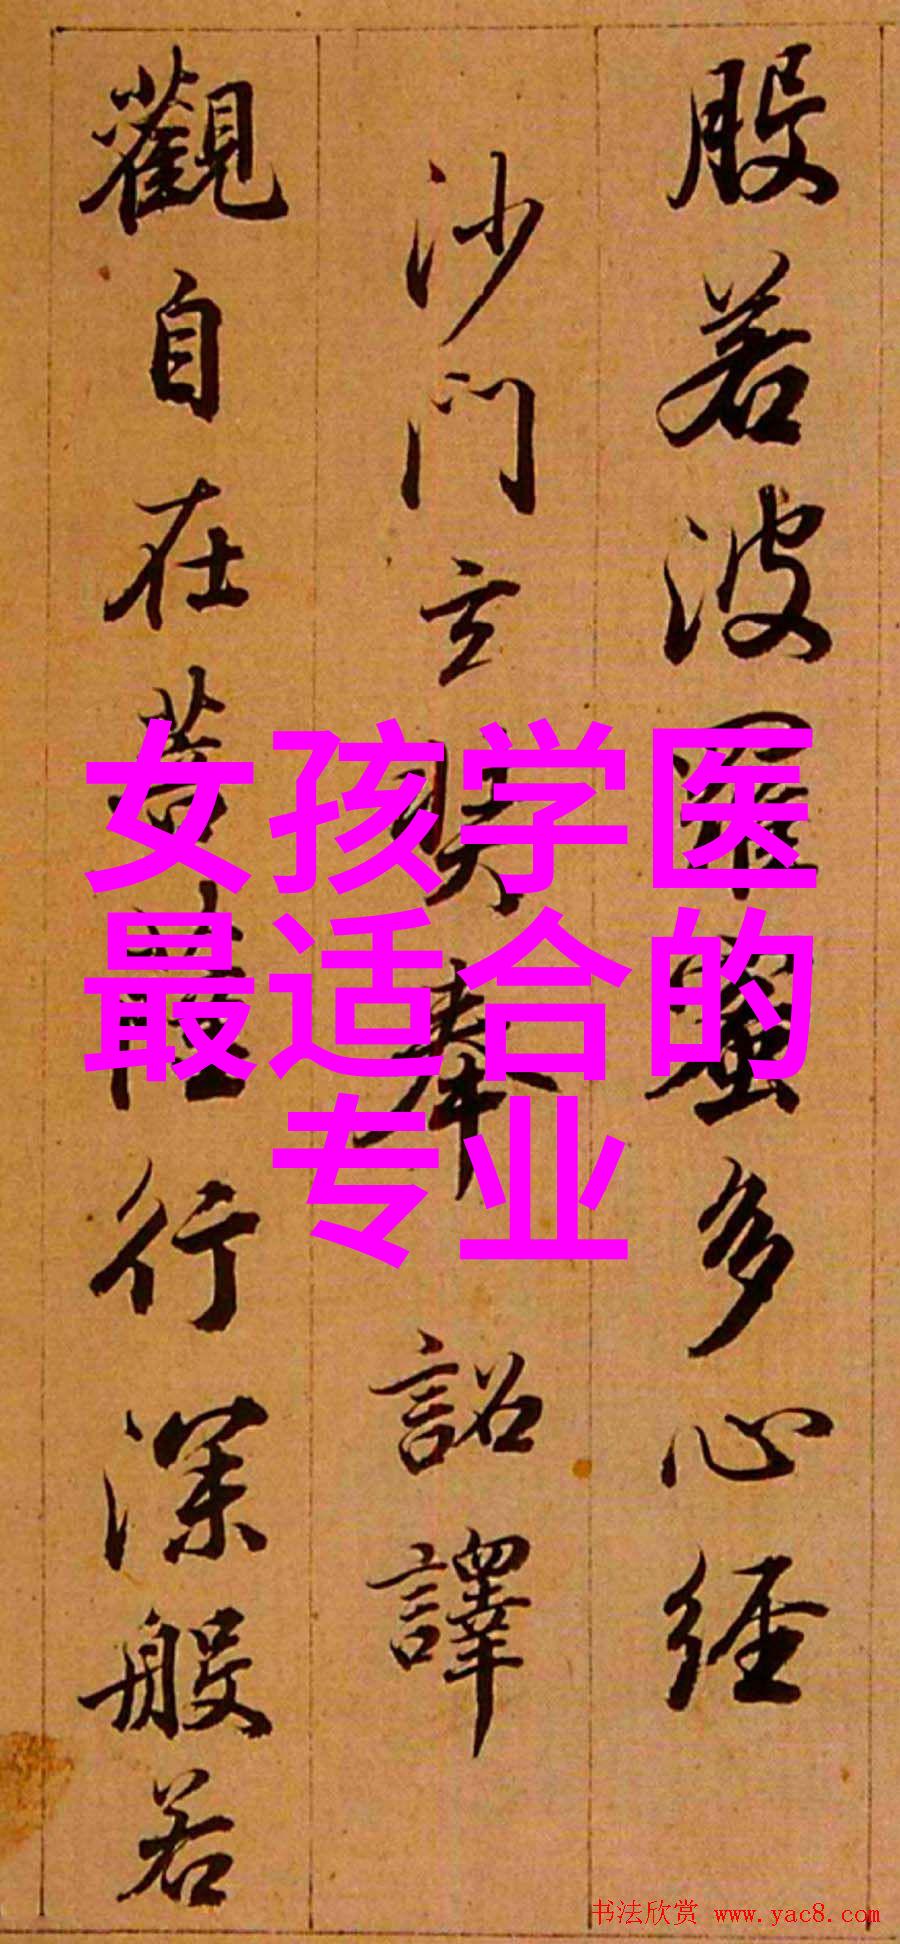 般若波羅蜜多心經
沙門玄奘奉詔譯
觀自在菩薩行深般若
女孩学医
最适合的
专业
书法欣赏 www.yac8.com